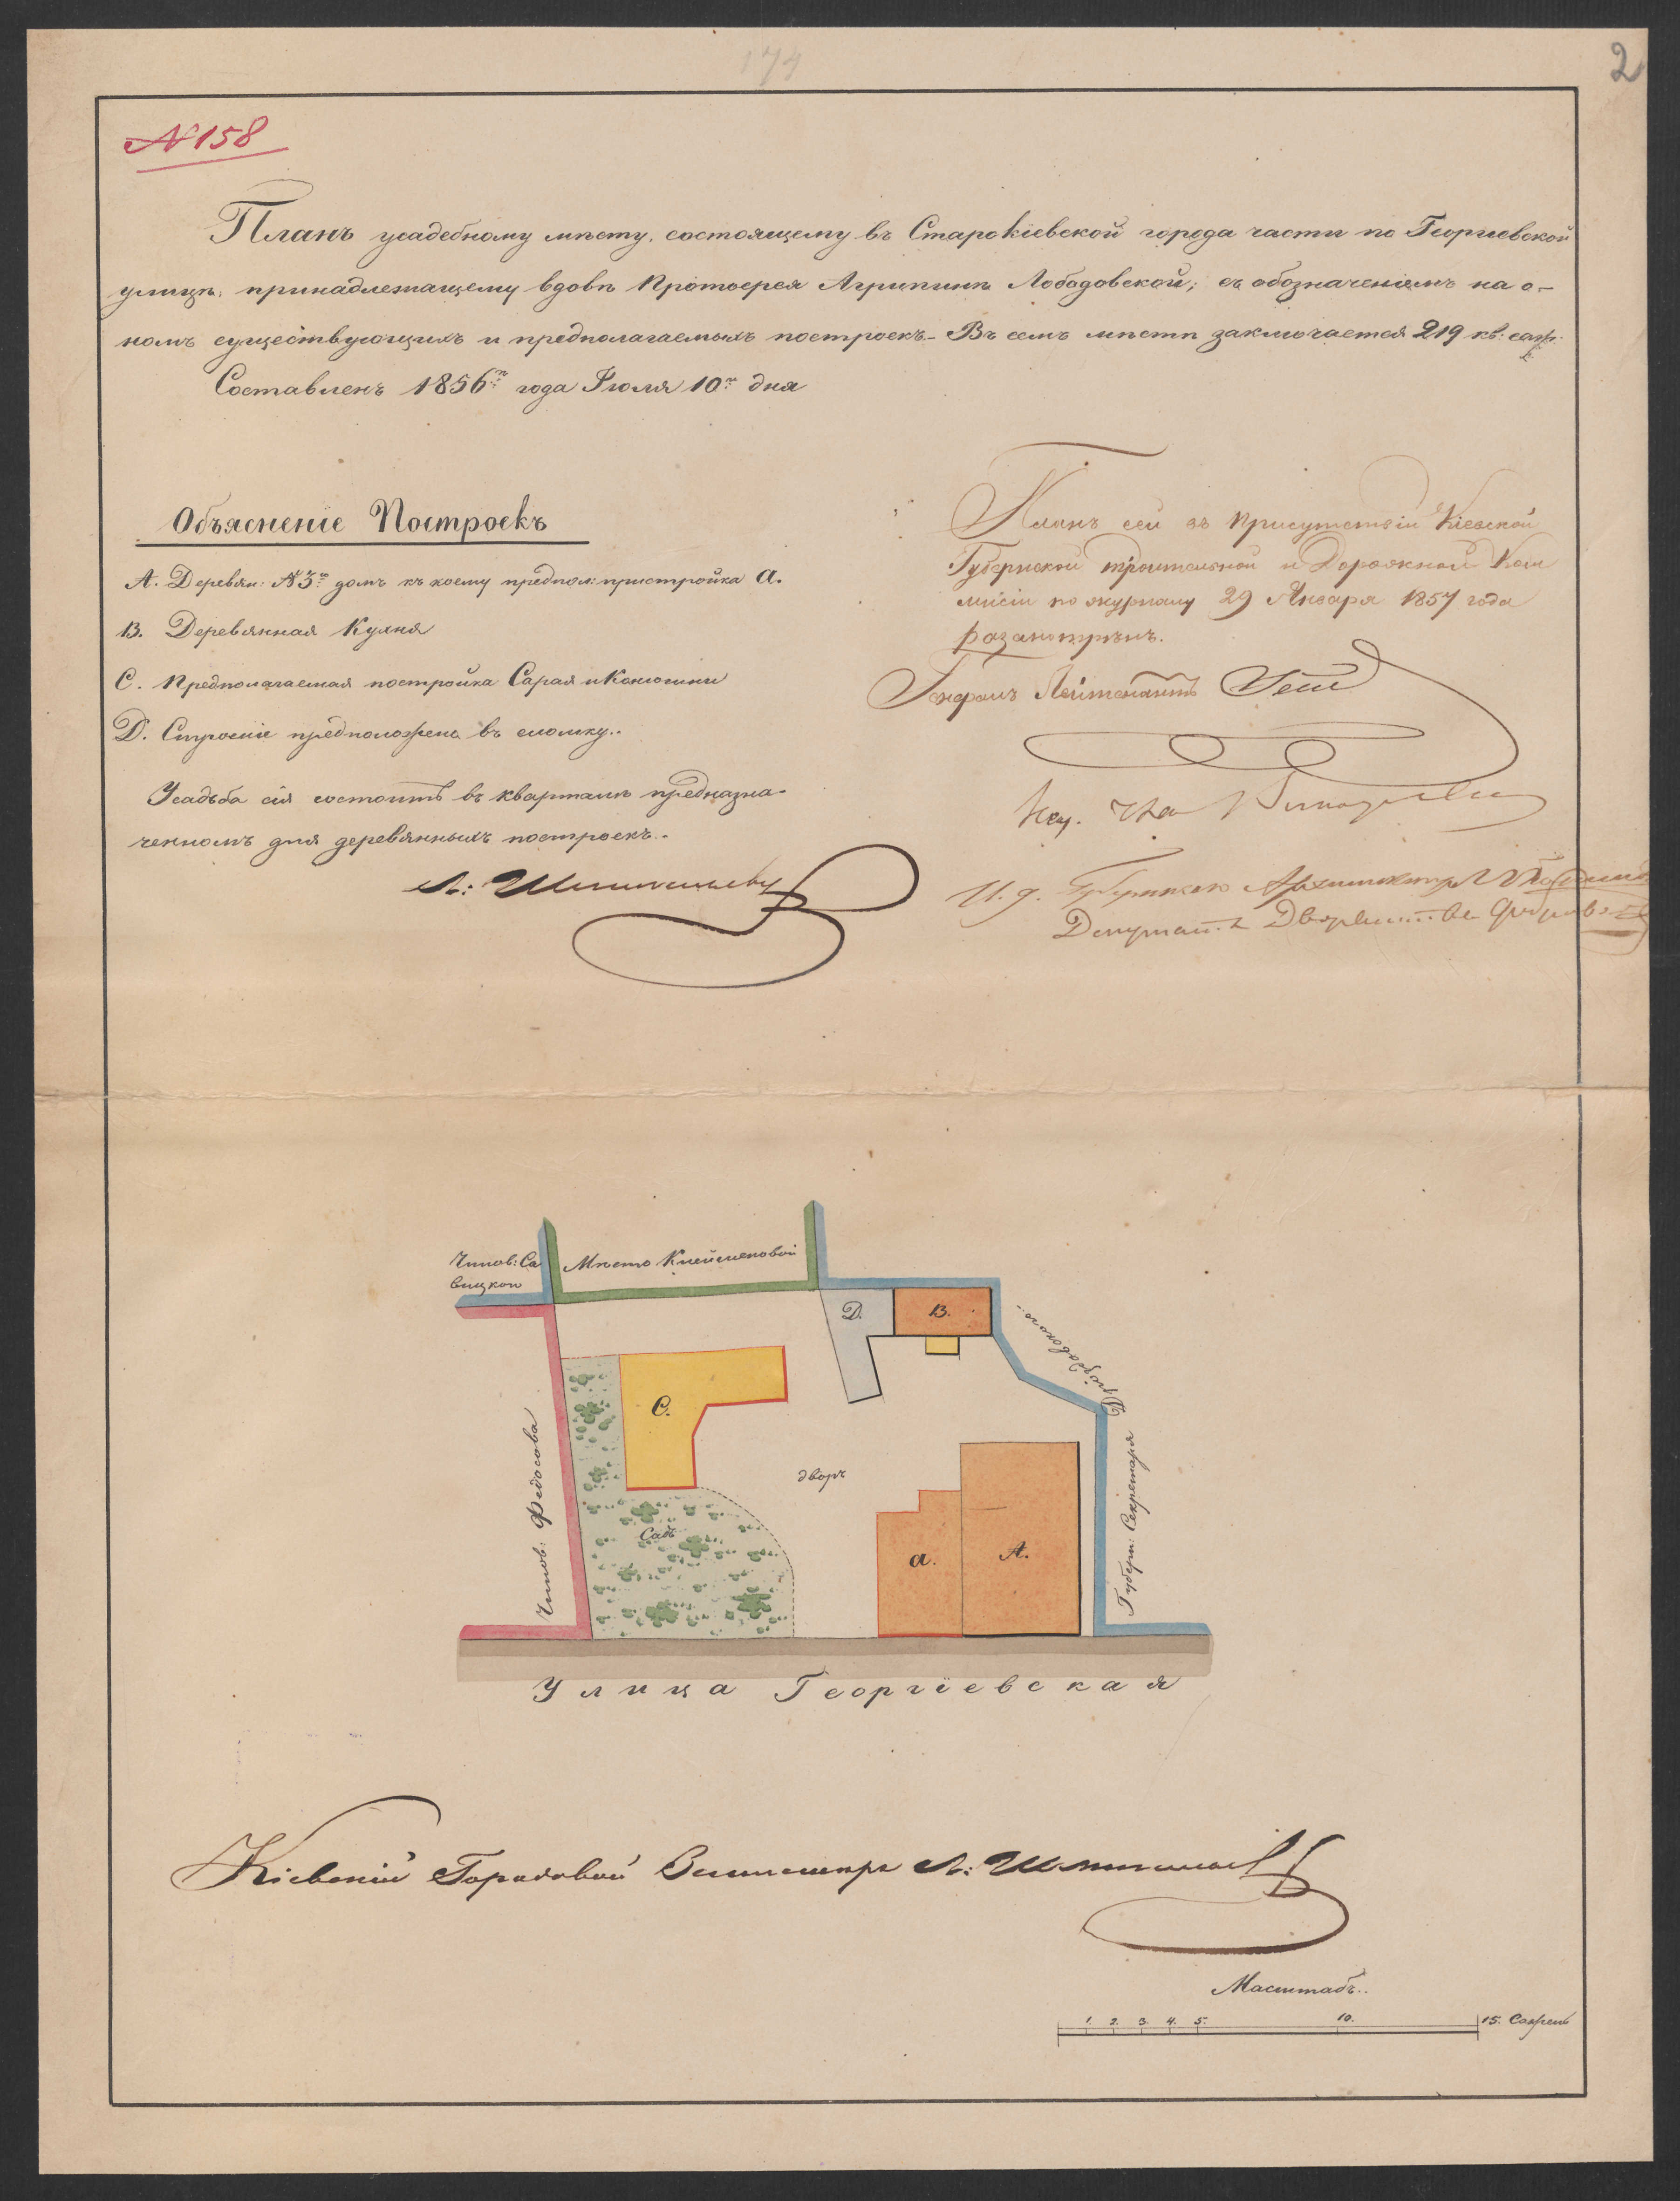 174
2
№158
Планъ усадебному мѣсту, состоящему въ Старокіевской города части по Георгіевской
улицѣ, принадлежащему вдовѣ Протоерея Агрипинѣ Лободовской; съ обозначеніемъ на о-
номъ существующихъ и предполагаемыхъ построекъ. Въ семъ мѣстѣ заключается 219 кв: саж:
Составленъ 1856го года Іюля 10го дня
Объясненіе Построекъ
А. Деревян: №3й домъ къ коему предпол: пристройка а.
В. Деревянная Кухня
С. Предполагаемая постройка Сарая и Конюшни
D. Строеніе предположено въ сломку.
Усадьба сія состоитъ въ кварталѣ предназна-
ченномъ для деревянныхъ построекъ.
Л:
Планъ сей въ Присутствіи Кіевской
Губернской Строительной и Дорожной Ком
мисіи по журналу 29 Января 1857 года
разсмотрѣнъ.
Генералъ Лейтенантъ
И. д. Губернскаго Архитектора
Депутатъ Дворянства
Чинов: Са
вицкой
Мѣсто Клейменовой
D.
В.
С.
дворъ
Садъ
а.
А.
Чинов: Федосова
Губерн: Секретаря
Улица Георгіевская
Кіевскій Городовой Землемѣръ Л:
Масштабъ.
1. 2. 3. 4. 5. 10. 15. Сажень